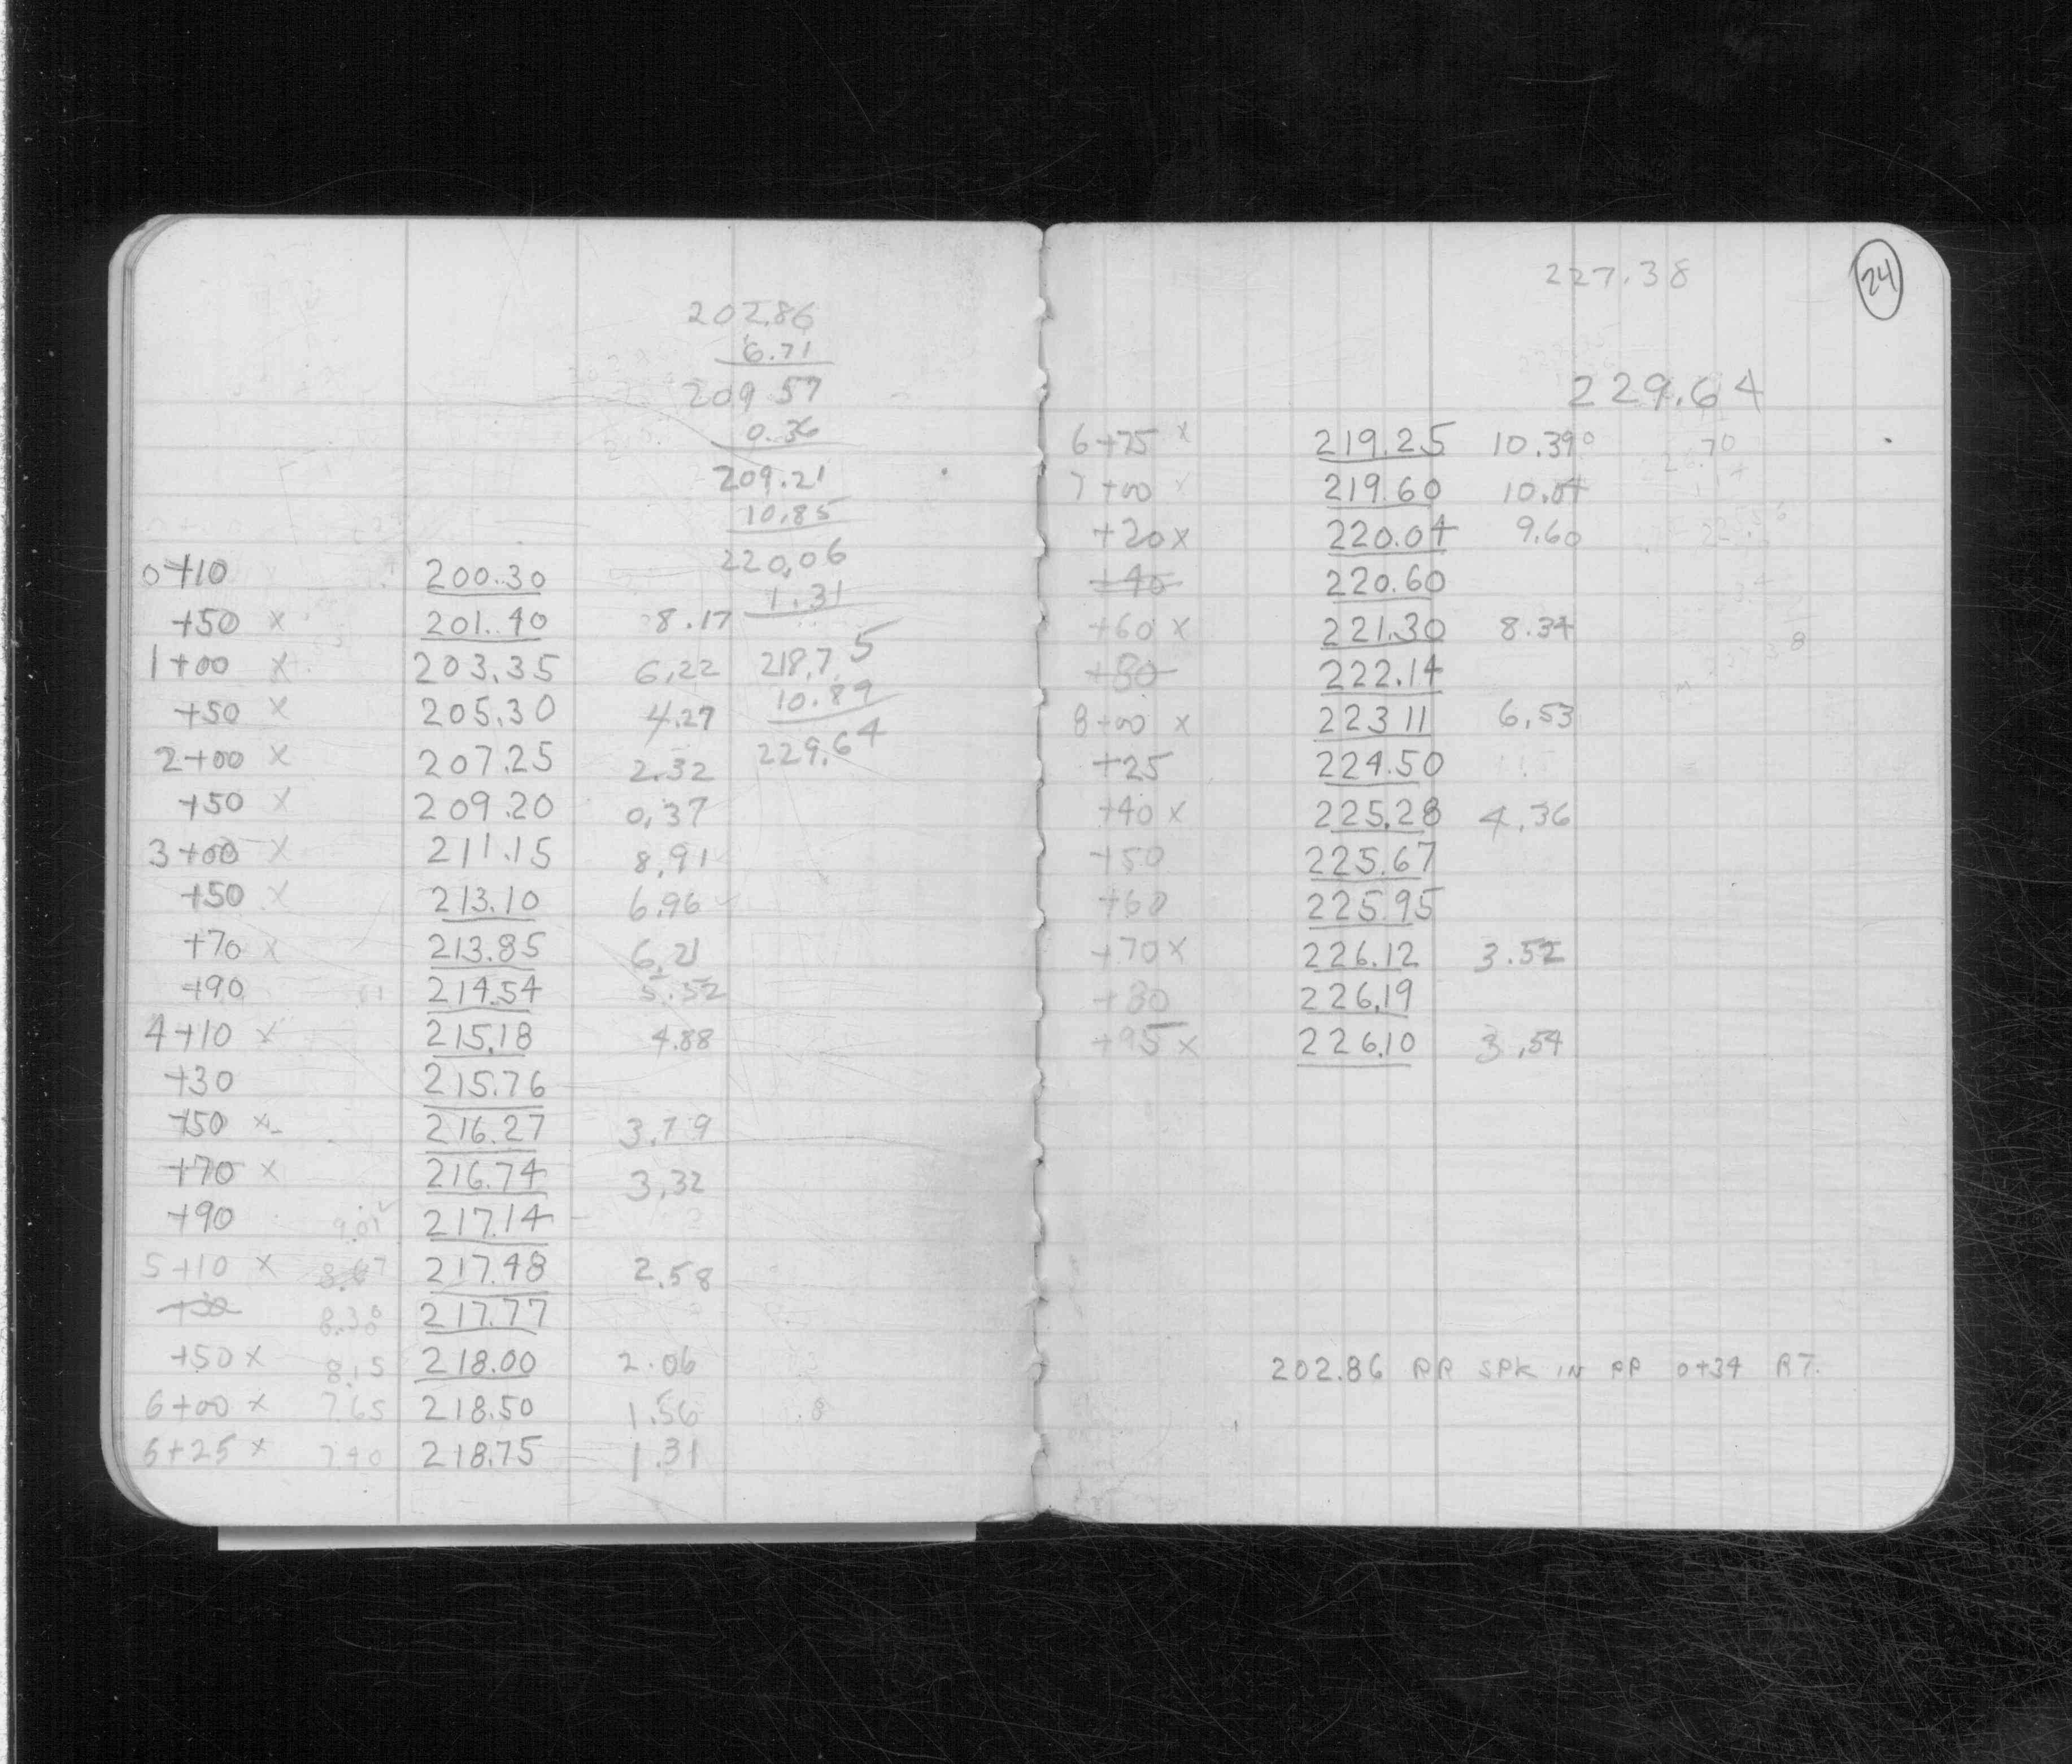 202.86
6.71
209.57
0.36
209.21
10.85
220.06
1.31
218.75
10.89
229.64
0+10 200.30
+50 x 201.40 8.17
1+00 x 203.35 6.22
+50 x 205.30 4.27
2+00 x 207.25 2.32
+50 x 209.20 0.37
3+00 x 211.15 8.91
+50 x 213.10 6.96
+70 x 213.85 6.21
+90 214.54 5.52
4+10 x 215.18 4.88
+30 215.76
+50 x 216.27 3.79
+70 x 216.74 3.32
+90 9.01 217.14
5+10 x 8.67 217.48 2.58
+30 8.38 217.77
+50 x 8.15 218.00 2.06
6+00 x 7.65 218.50 1.56
6+25 x 7.40 218.75 1.31
24
227.38
229.64
6+75 x 219.25 10.39
7+00 x 219.60 10.04
+20 x 220.04 9.60
+40 220.60
+60 x 221.30 8.34
+80 222.14
8+00 x 223.11 6.53
+25 224.50
+40 x 225.28 4.36
+50 225.67
+60 225.95
+70 x 226.12 3.52
+80 226.19
+95 x 226.10 3.54
202.86 RR SPK IN PP 0+34 RT.